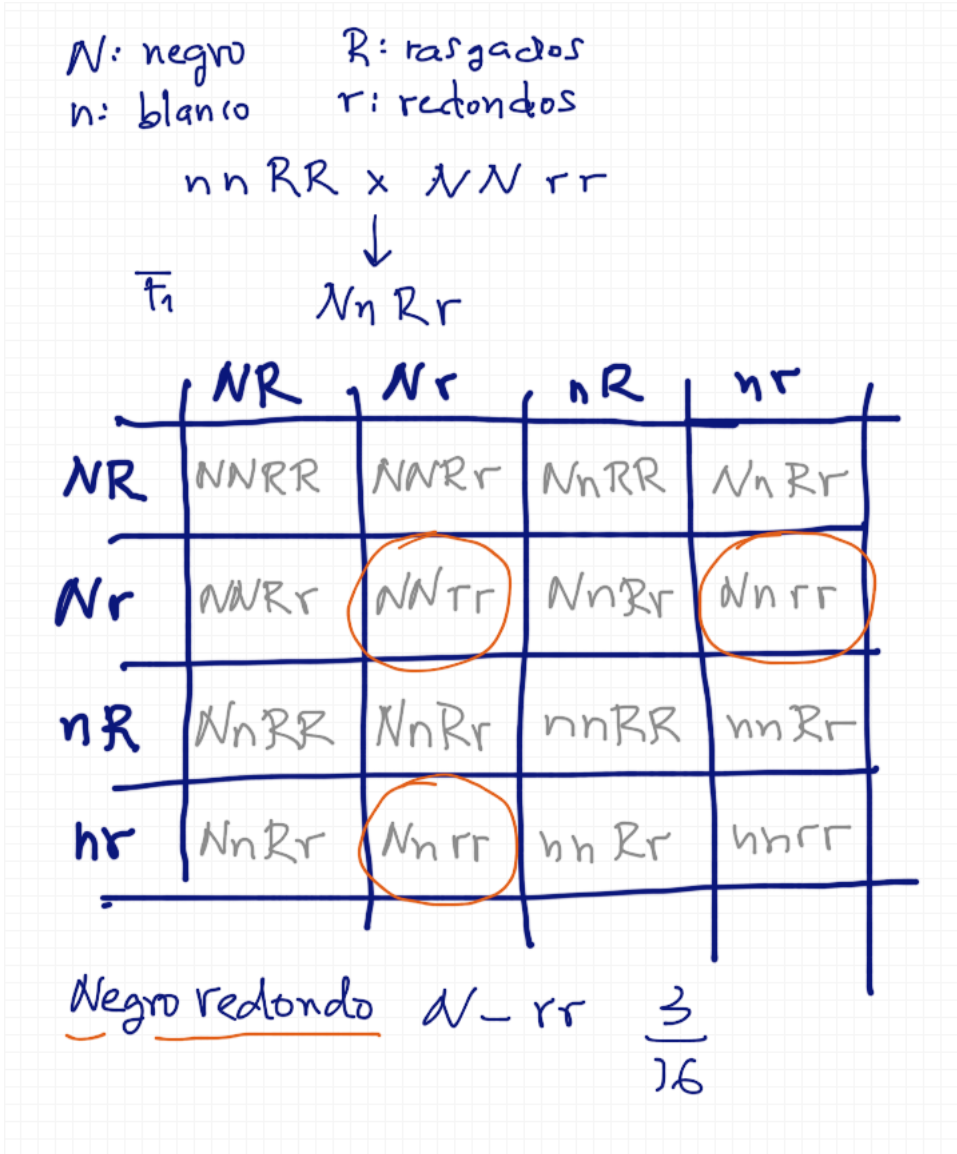 N: negro R: rasgados
n: blanco r: redondos
nnRR x NNrr
F1 NnRr
NR Nr nR nr
NR NNRR NNRr NnRR NnRr
Nr NNRr NNrr NnRr Nnrr
nR NnRR NnRr nnRR nnRr
nr NnRr Nnrr nnRr nnrr
Negro redondo N-rr 3
16